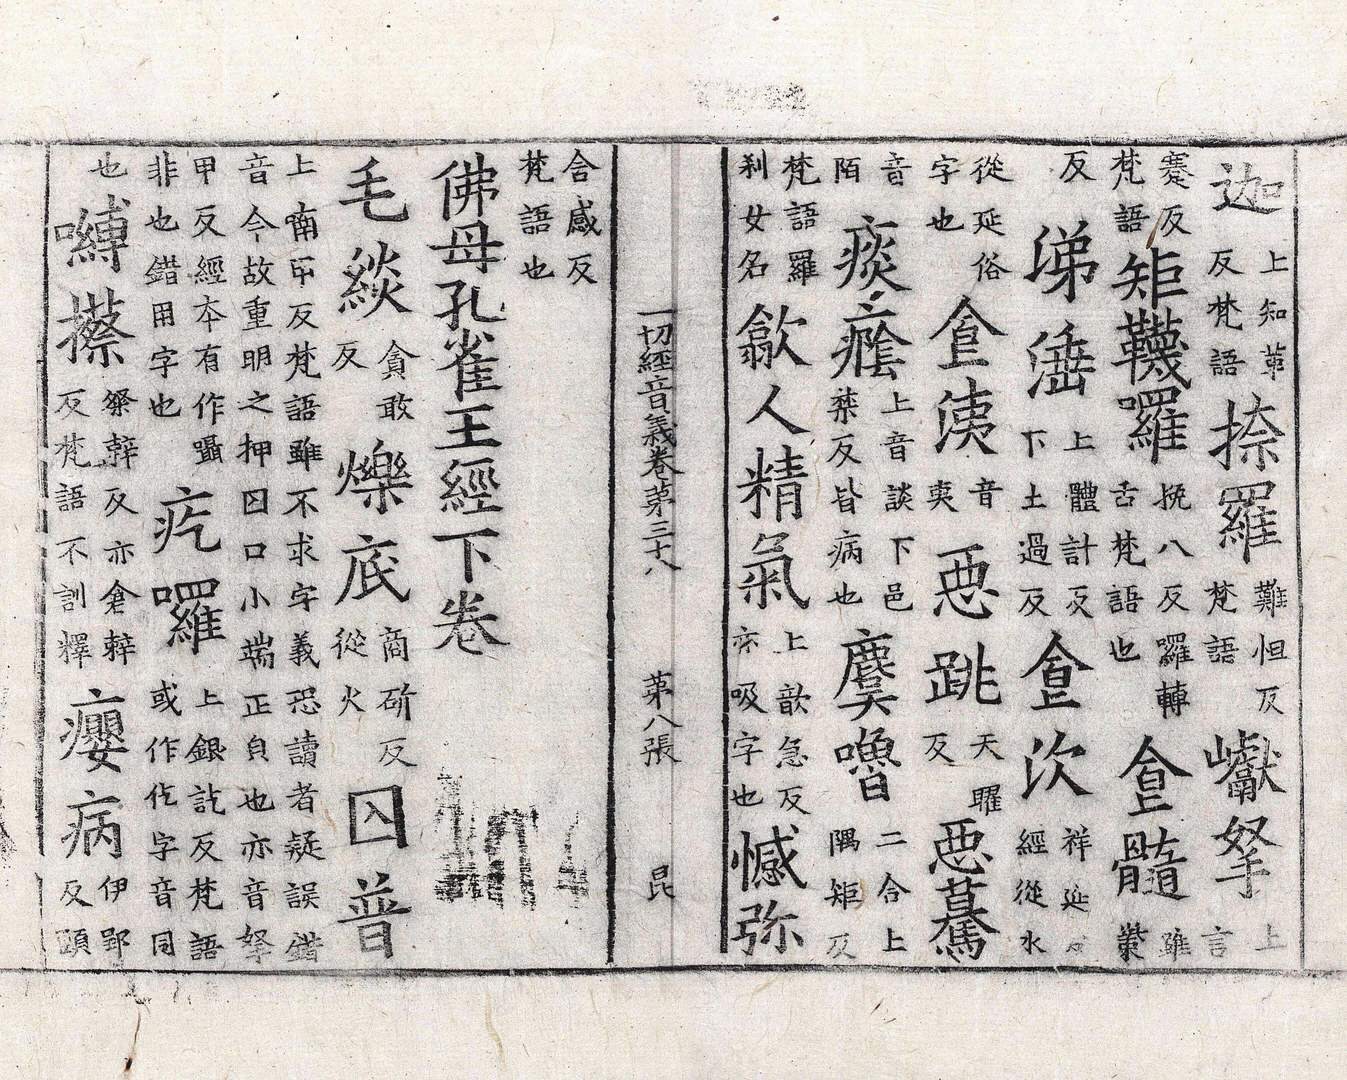 迦上知革反梵語捺羅難怛反梵語巘拏上言
蹇反梵語矩韈囉挩八反囉轉舌梵語也食髓雖紫
反涕涶上體計反下土過反食次祥延反經從水
從延俗字也食洟音夷惡跳天曜反惡驀
音陌痰癊上音談下邑禁反皆病也麌嚕二合上隅矩反
梵語羅刹女名歙人精氣上歆急反亦吸字也憾弥
一切經音義卷第三十八 第八張 昆
合感反梵語也
佛母孔雀王經下卷
毛緂貪敢反爍底商斫反從火囚普
上喃反梵語雖不求字義恐讀者疑誤錯音今故重明之押囚口小端正負也亦音拏
甲反經本有作囁非也錯用字也疙囉上銀訖反梵語或作仡字音同
也嚩攃粲辢反亦倉辢反梵語不訓釋癭病伊郢反頸